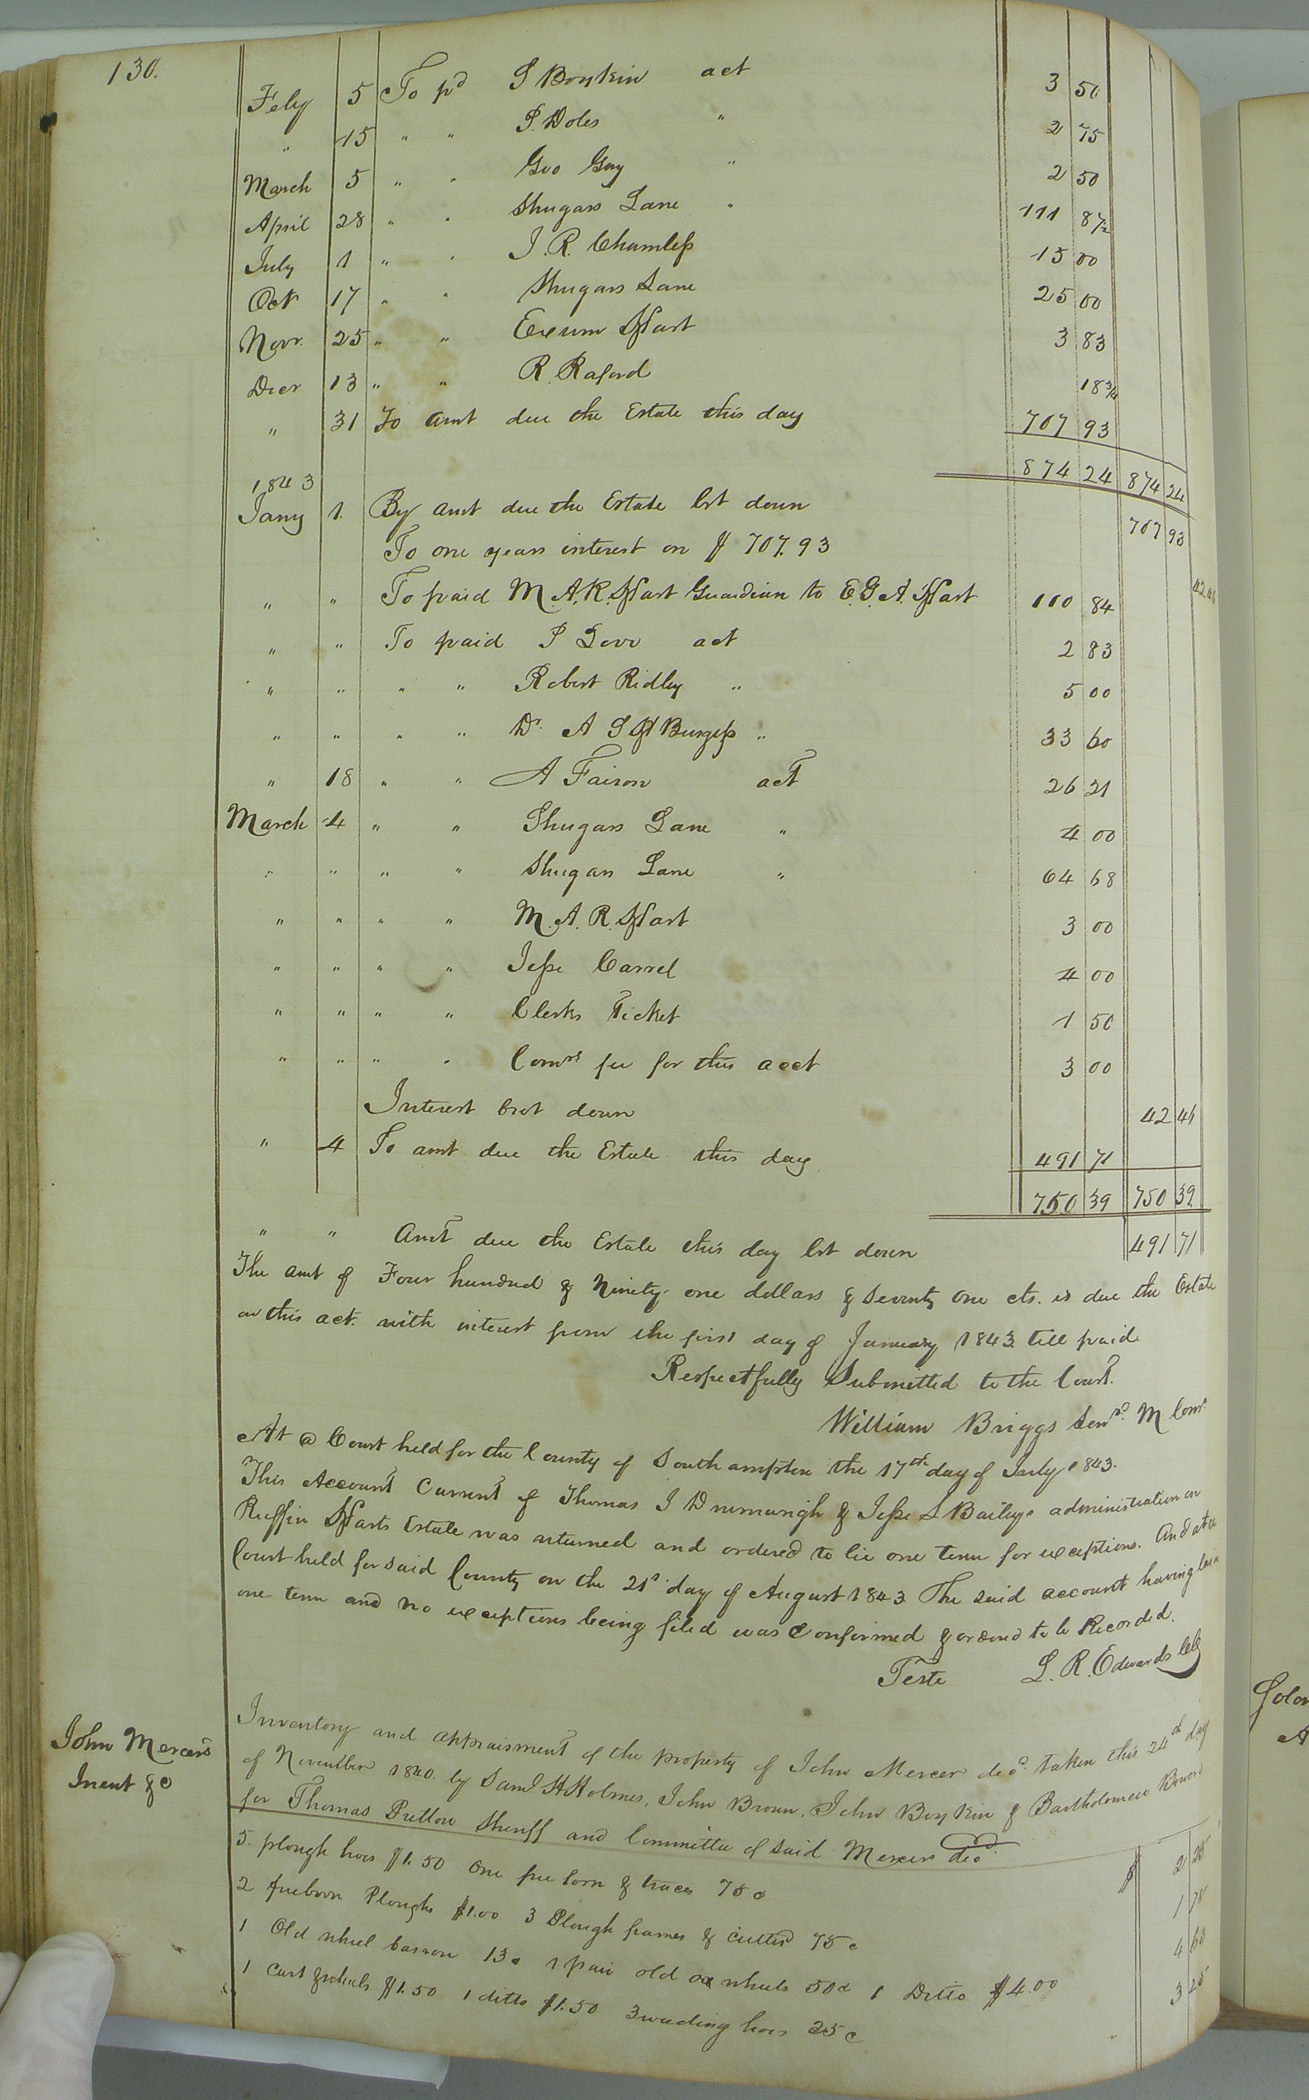 130.
Feby 5 To pd S Boykin act 3 50
" 15 " " P. Doles " 2 75
March 5 " " Geo Gay " 2 50
April 28 " " Shugars Lane " 111 87½
July 1 " " J. R. Chambless 15 00
Oct 17 " " Shugars Lane 25 00
Novr. 25 " " Exum Hart 3 83
Decr 13 " " R. Raford 18¾
" 31 To amt due the Estate this day 707 93
874 24 874 24
1843
Jany 1. By amt due the Estate brt down 707 93
To one years interest on $ 707.93 42.46
" " To paid M. A. R. Hart Guardian to E. G. A. Hart 110 84
" " To paid P Love act 2 83
" " " " Robert Ridley " 5 00
" " " " Dr. A S H Burgess " 33 60
" 18 " " A Faison act 26 21
March 4 " " Shugars Lane " 4 00
" " " " Shugars Lane " 64 68
" " " " M. A. R. Hart 3 00
" " " " Jesse Carrel 4 00
" " " " Clerks Ticket 1 50
" " " " Comrs fee for this acct 3 00
Interest brot down 42 46
" 4 To amt due the Estate this day 491 71
750 39 750 39
" " Amt due the Estate this day brt down 491 71
The amt of Four hundred & Ninety-one dollars & Seventy one cts. is due the Estate
on this act. with interest from the first day of January 1843 till paid
Respectfully Submitted to the Court.
William Briggs Senr. M Comr.
At a Court held for the County of Southampton the 17th day of July 1843.
This Account Current of Thomas J Drumwrigh & Jesse S Baileys administration on
Ruffin Harts Estate was returned and ordered to lie one term for exceptions. And at a
Court held for said County on the 21st day of August 1843 The said account having lain
one term and no exceptions being filed was Confirmed & ordered to be Recorded.
Teste L. R. Edwards Clk
John Mercer's
Invent &c
Inventory and appraisment of the property of John Mercer decd. taken this 24th day
of November 1840. by Saml H Holmes, John Brown, John Boykin & Bartholomew
for Thomas Pretlow Sheriff and Committee of said Mercer decd.
5 plough hoes $1.50 One fu born & traces 75 c $ 2 25
2 fuborn Ploughs $1.00 3 Plough frames & cutter 75 c 1 75
1 Old wheel barrow 13 c 1 pair old ox wheels 50 c 1 Ditto $4.00 4 63
1 Cart & wheels $1.50 1 ditto $1.50 3 weeding hoes 25 c 3 25